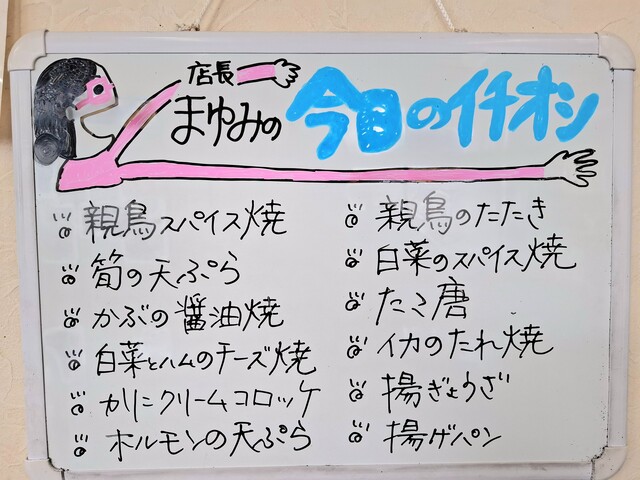 店長
まゆみの今日のイチオシ
親鳥スパイス焼
筍の天ぷら
かぶの醤油焼
白菜とハムのチーズ焼
かにクリームコロッケ
ホルモンの天ぷら
親鳥のたたき
白菜のスパイス焼
たこ唐
イカのたれ焼
揚ぎょうざ
揚げパン